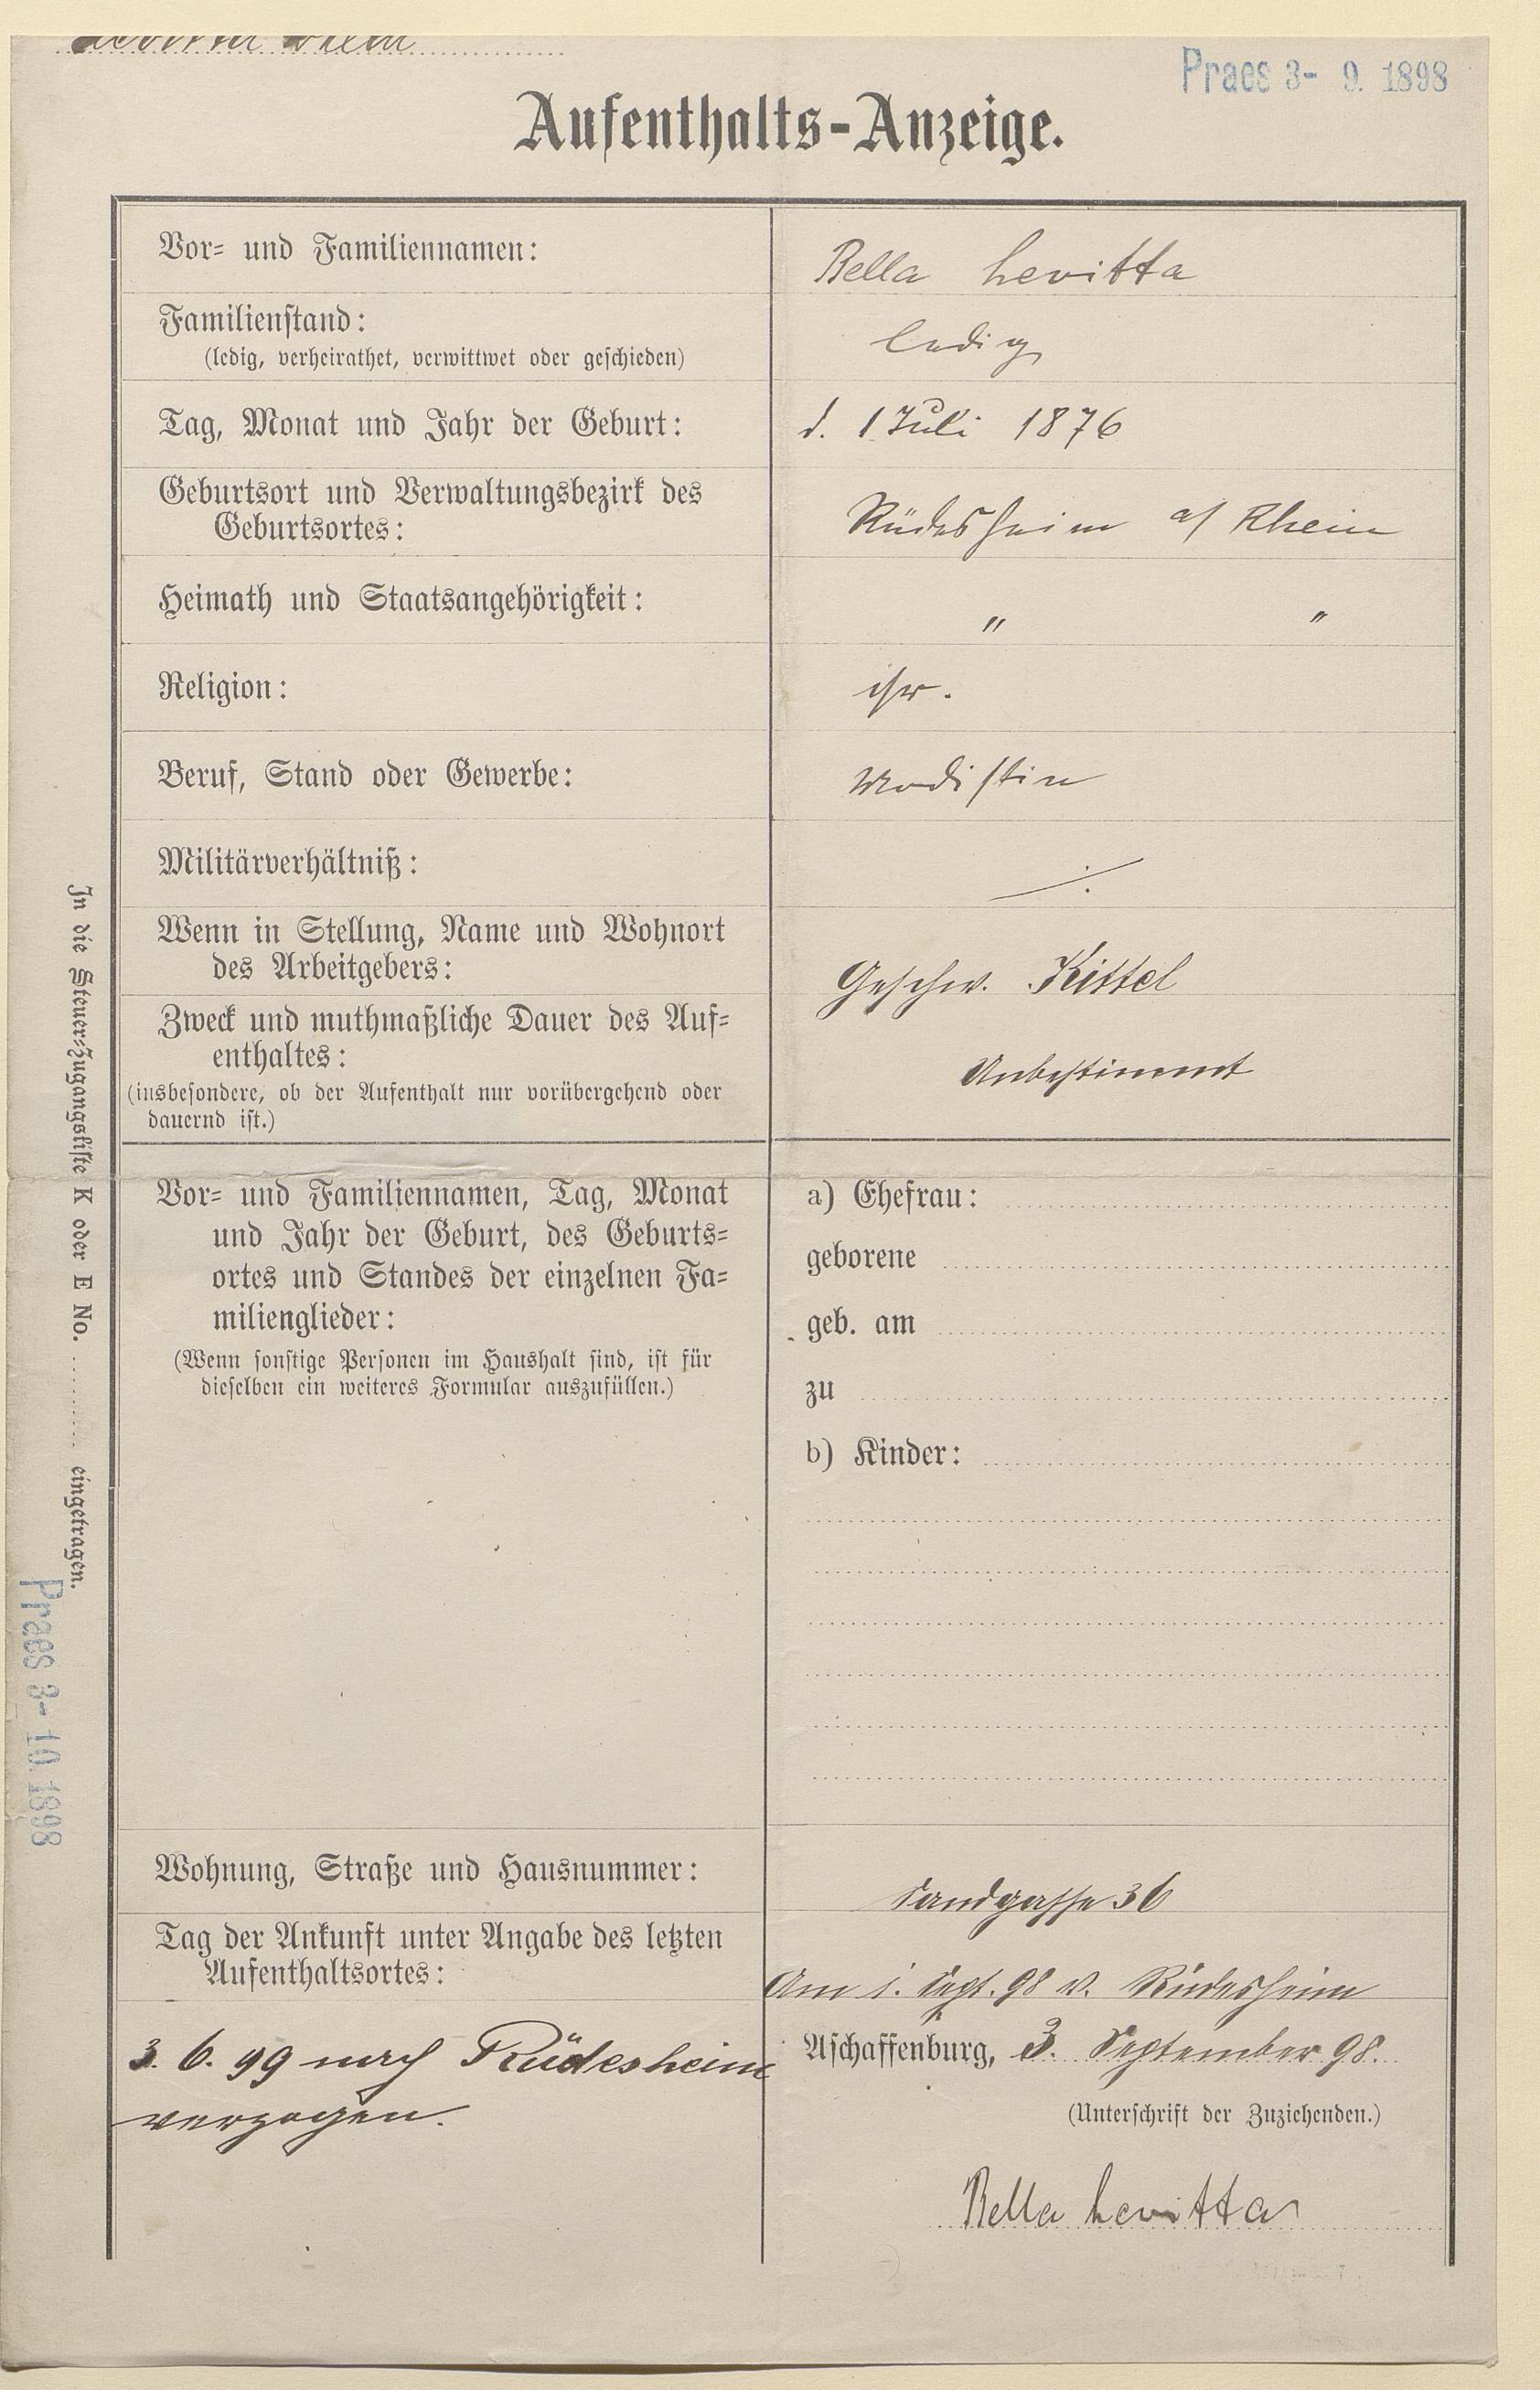 Praes 3- 9. 1898
Aufenthalts-Anzeige.
Vor- und Familiennamen:
Bella Levitta
Familienstand:
(ledig, verheirathet, verwittwet oder geschieden)
ledig
Tag, Monat und Jahr der Geburt:
d. 1 Juli 1876
Geburtsort und Verwaltungsbezirk des
Geburtsortes:
Rüdesheim a/ Rhein
Heimath und Staatsangehörigkeit:
" "
Religion:
isr.
Beruf, Stand oder Gewerbe:
Modistin
Militärverhältniß:
./.
Wenn in Stellung, Name und Wohnort
des Arbeitgebers:
Geschw. Kittel
Zweck und muthmaßliche Dauer des Auf-
enthaltes:
(insbesondere, ob der Aufenthalt nur vorübergehend oder
dauernd ist.)
Unbestimmt
Vor- und Familiennamen, Tag, Monat
und Jahr der Geburt, des Geburts-
ortes und Standes der einzelnen Fa-
milienglieder:
(Wenn sonstige Personen im Haushalt sind, ist für
dieselben ein weiteres Formular auszufüllen.)
a) Ehefrau:
geborene
geb. am
zu
b) Kinder:
Wohnung, Straße und Hausnummer:
Sandgasse 36
Tag der Ankunft unter Angabe des letzten
Aufenthaltsortes:
Am 1. Sept. 98 v. Rüdesheim
3. 6. 99 nach Rüdesheim
verzogen.
Aschaffenburg, 3. September 98.
(Unterschrift der Zuziehenden.)
Bella Levitta
In die Steuer-Zugangsliste K oder E No. eingetragen.
Praes 3- 10. 1898